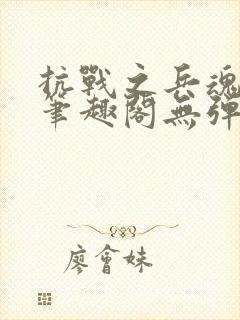 抗戰之兵魂
筆趣閣無彈
廖會妹